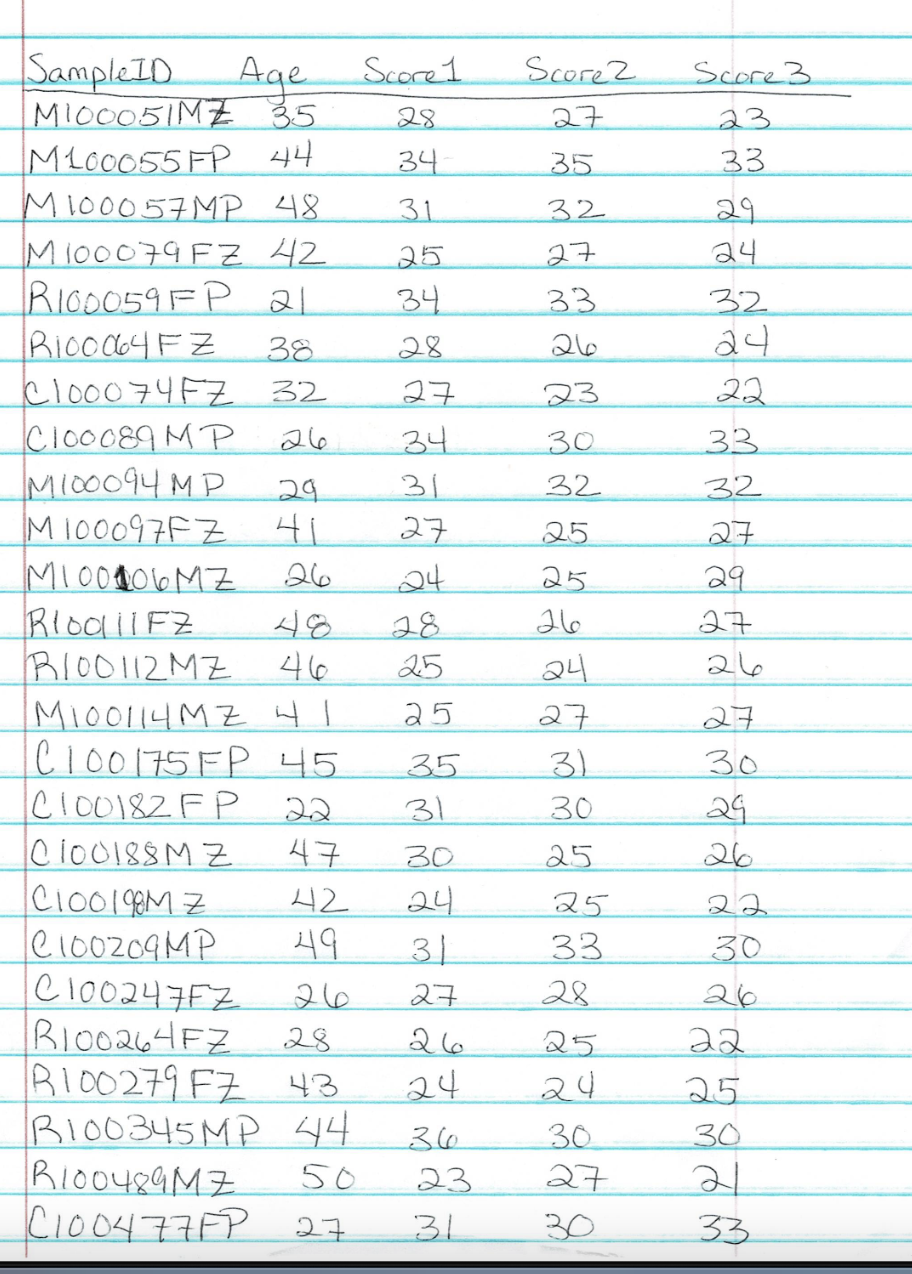 SampleID Age Score1 Score2 Score3
M100051MZ 35 28 27 23
M100055FP 44 34 35 33
M100057MP 48 31 32 29
M100079FZ 42 25 27 24
R100059FP 21 34 33 32
R100064FZ 38 28 26 24
C100074FZ 32 27 23 22
C100089MP 26 34 30 33
M100094MP 29 31 32 32
M100097FZ 41 27 25 27
M100106MZ 26 24 25 29
R100111FZ 48 28 26 27
R100112MZ 46 25 24 26
M100114MZ 41 25 27 27
C100175FP 45 35 31 30
C100182FP 22 31 30 29
C100188MZ 47 30 25 26
C100198MZ 42 24 25 22
C100209MP 49 31 33 30
C100247FZ 26 27 28 26
R100264FZ 28 26 25 22
R100279FZ 43 24 24 25
R100345MP 44 36 30 30
R100489MZ 50 23 27 21
C100477FP 27 31 30 33